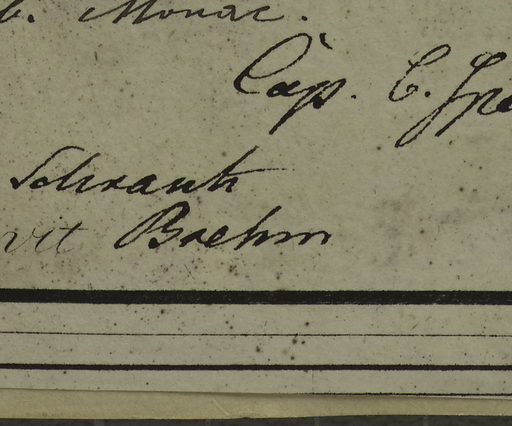 b. Monac.
Cap. C. Spe
Schrank
vit Boehm